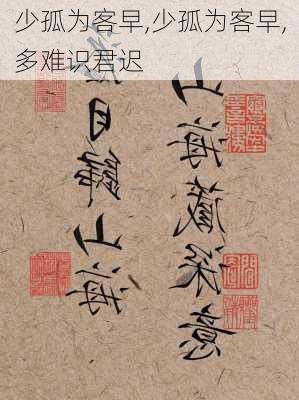 少孤为客早,少孤为客早,
多难识君迟
山海藏深意
日解山海